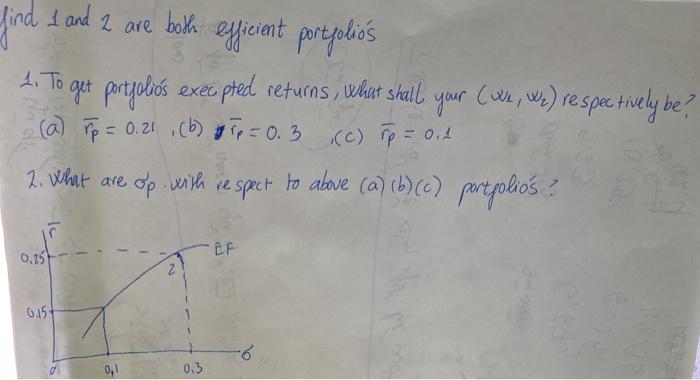 find 1 and 2 are both efficient portfolio's
1. To get portfolio's execpted returns, what shall your (w1, w2) respectively be?
(a) r̄p = 0.21 , (b) r̄p = 0.3 , (c) r̄p = 0.1
2. What are σp with respect to above (a) (b) (c) portfolio's?
r̄
EF
0.25
2
0.15
σ
0
0,1
0.3